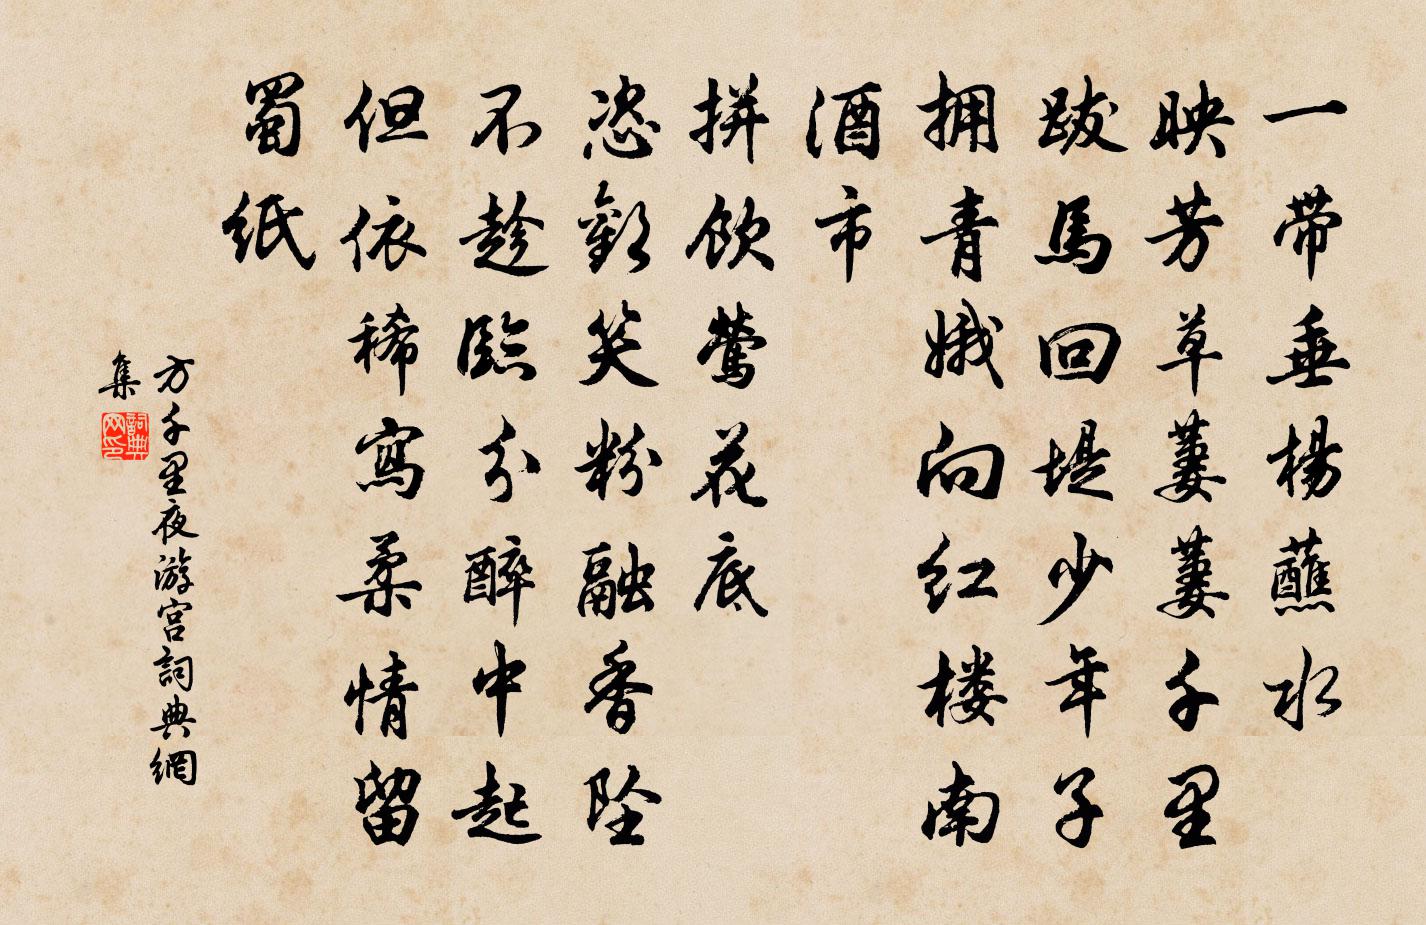 一帶垂楊蘸水
映芳草萋萋千里
跋馬回堤少年子
拥青娥向红楼南
酒市
拼飲鶯花底
恣歡笑粉融香坠
不趁臨分醉中起
但依稀寫柔情留
蜀纸
方千里夜游宫詞典網
集
詞典
网印